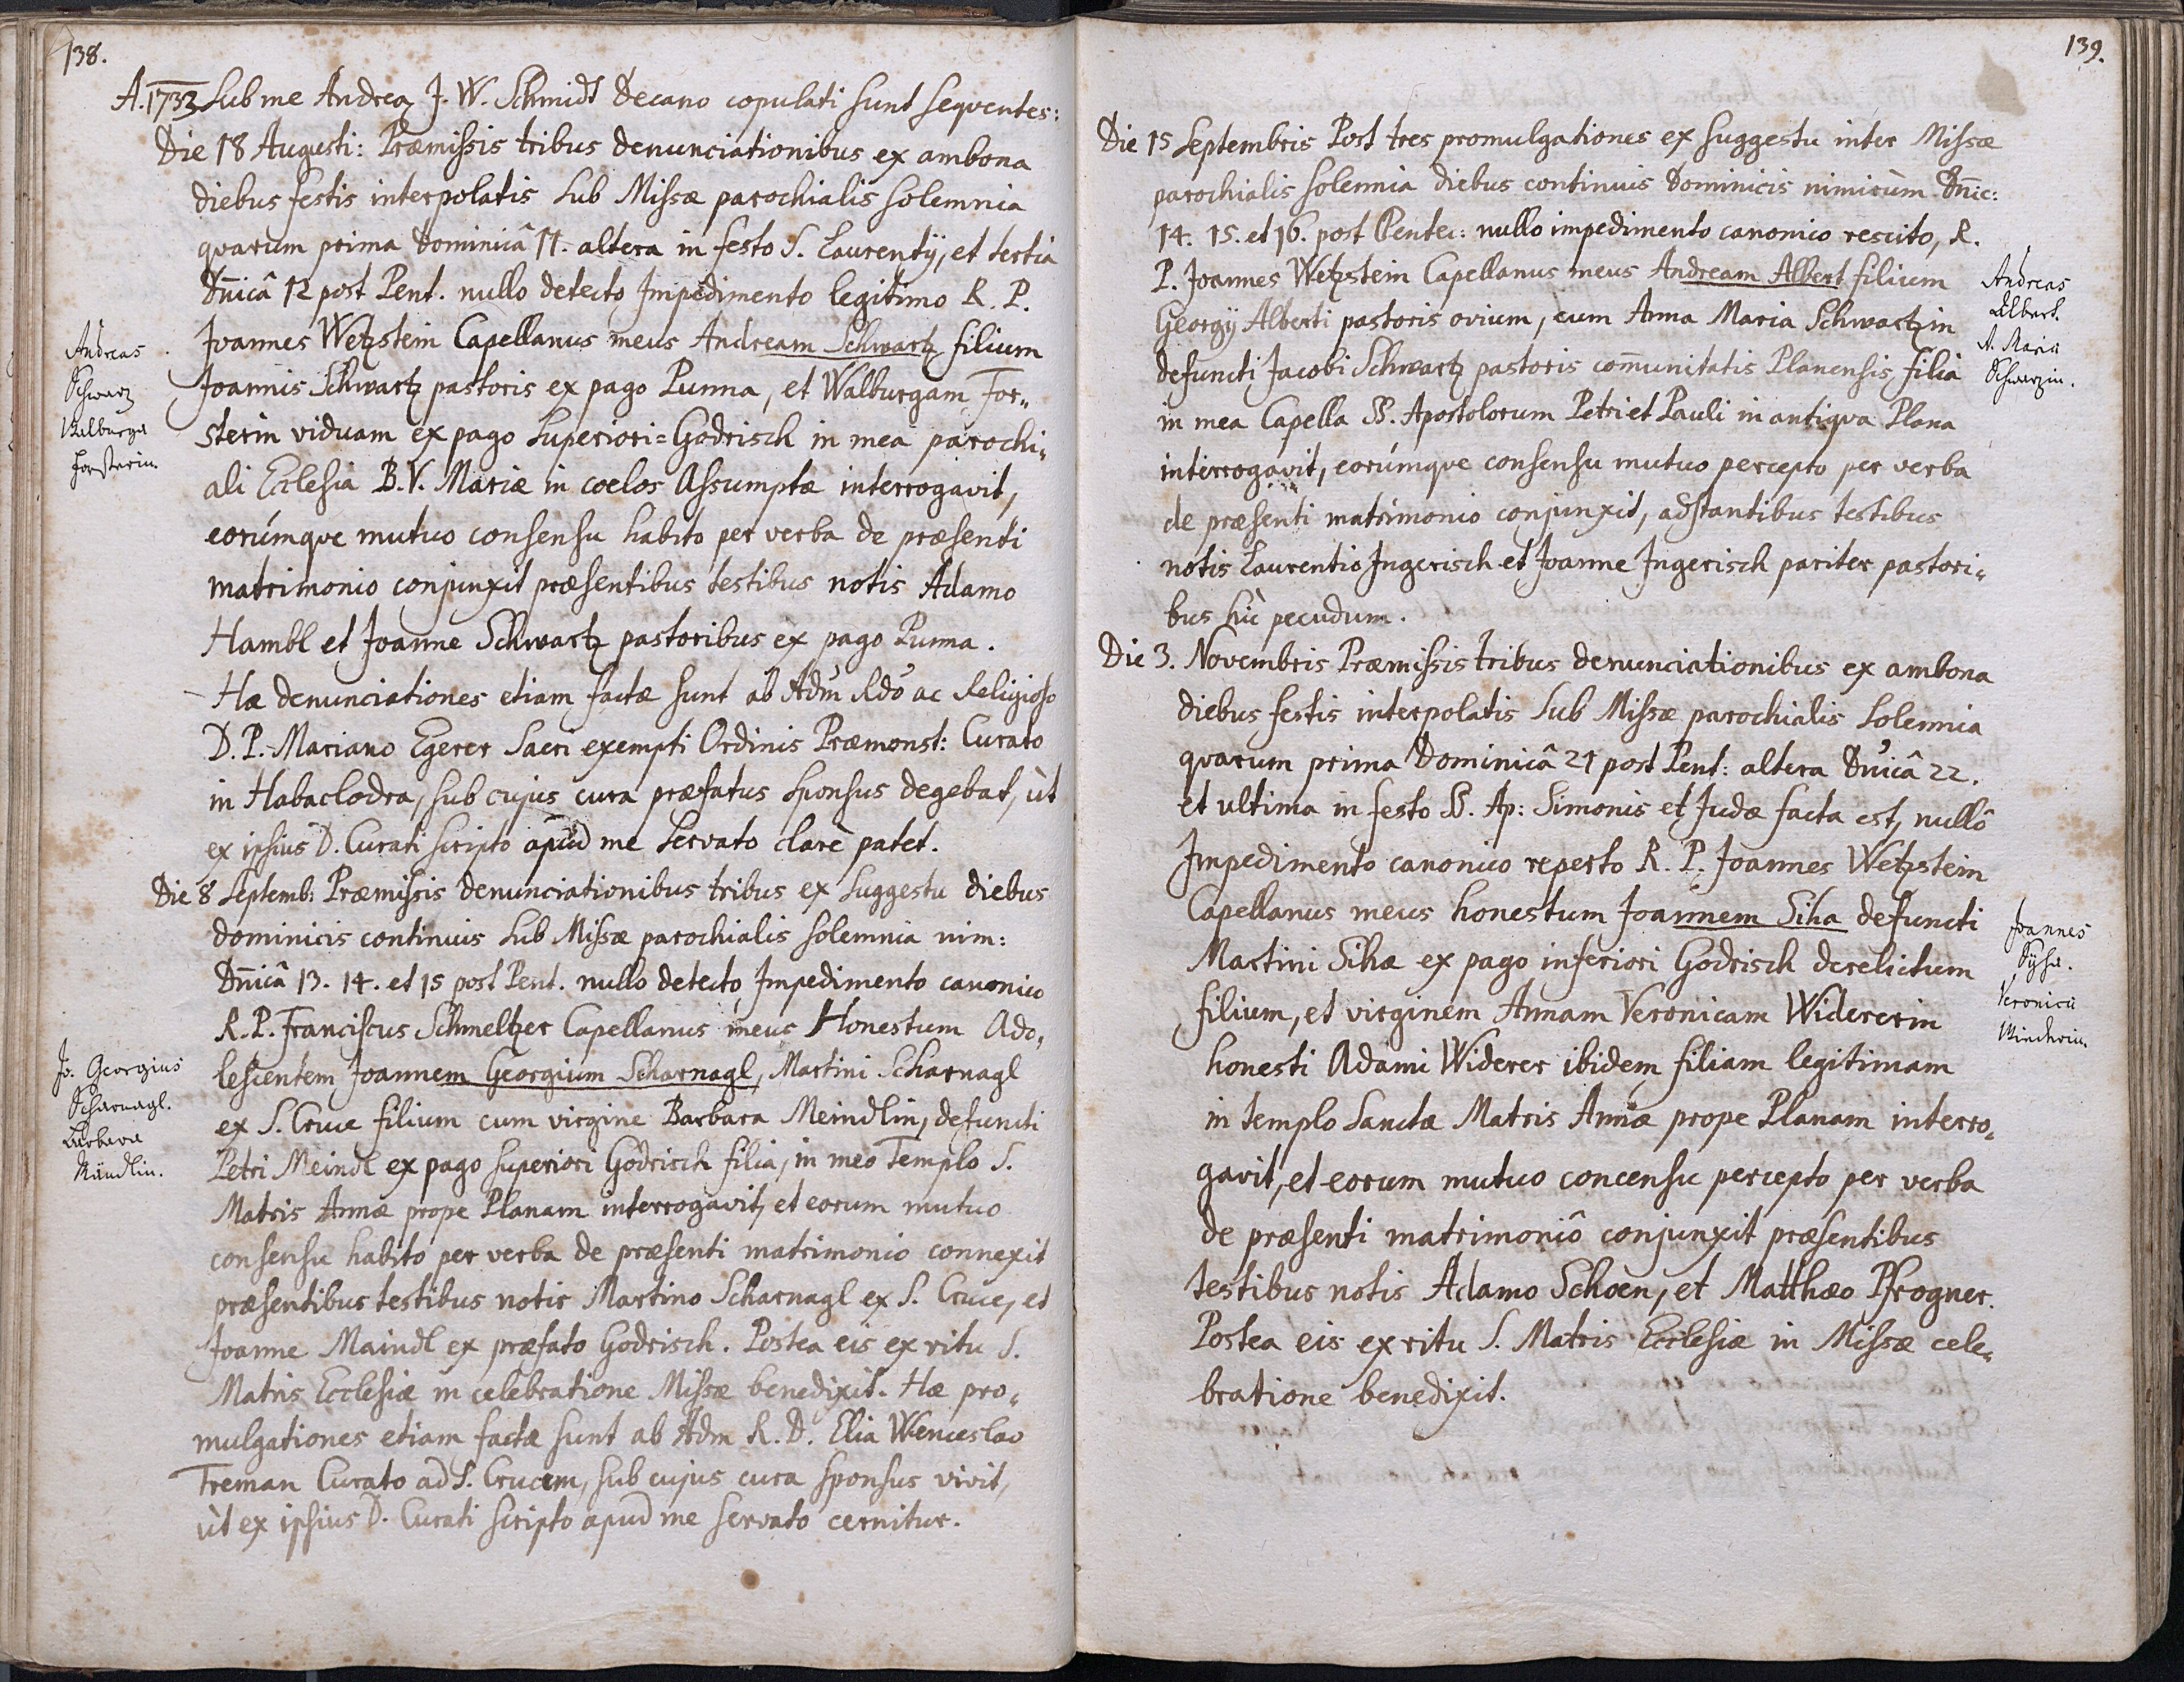 138.
A. 1733 Sub me Andrea J. W. Schmidt Decano copulati sunt seqventes:
Die 18 Augusti: Præmissis tribus denunciationibus ex ambona
diebus festis interpolatis sub Missæ parochialis solemnia
qvarum prima Dominicâ 11. altera in festo S. Laurentÿ, et tertia
Dnicâ 12 post Pent. nullo detecto Impedimento legitimo R. P.
Joannes Wetzstein Capellanus meus Andream Schwartz filium
Joannis Schwartz pastoris ex pago Punna, et Walburgam For„
sterin viduam ex pago Superiori=Godrisch in mea parochi„
ali Ecclesia B.V. Mariæ in coelos Assumptæ interrogavit,
eorúmqve mutuo consensu habito per verba de præsenti
matrimonio conjunxit præsentibus testibus notis Adamo
Hambl et Joanne Schwartz pastoribus ex pago Punna.
Hæ denunciationes etiam factæ sunt ab Adm Rdo ac Religioso
D. P. Mariano Egerer Sacri exempti Ordinis Præmonst: Curato
in Habaclodra, sub cujus cura præfatus sponsus degebat, ùt
ex ipsius D. Curati scripto apud me servato clarè patet.
Andreas
Schwarz
Walburga
Forsterin.
Die 8 Septemb: Præmissis denunciationibus tribus ex suggestu diebus
dominicis continuis sub Missæ parochialis solemnia nim:
Dnicâ 13. 14. et 15 post Pent. nullo detecto Impedimento canonico
R. P. Franciscus Schmeltzer Capellanus meus Honestum Ado„
lescentem Joannem Georgium Scharnagl, Martini Scharnagl
ex S. Cruce filium cum virgine Barbara Meindlin, defuncti
Petri Meindl ex pago superiori Godrisch filia, in meo Templo S.
Matris Annæ prope Planam interrogavit, et eorum mutuo
consensu habito per verba de præsenti matrimonio connexit
præsentibus testibus notis Martino Scharnagl ex S. Cruce, et
Joanne Maindl ex præfato Godrisch. Postea eis ex ritu S.
Matris Ecclesiæ in celebratione Missæ benedixit. Hæ pro„
mulgationes etiam factæ sunt ab Adm R. D. Elia Wenceslao
Treman Curato ad S. Crucem, sub cujus cura sponsus vivit,
ùt ex ipsius D. Curati scripto apud me servato cernitur.
Jo. Georgius
Scharnagl.
Barbara
Mändlin.
139.
Die 15 Septembris Post tres promulgationes ex suggestu inter Missæ
parochialis solemnia diebus continuis Dominicis nimirùm Dnic:
14. 15. et 16. post Pentec: nullo impedimento canonico rescito, R.
P. Joannes Wetzstein Capellanus meus Andream Albert filium
Georgÿ Alberti pastoris ovium, cum Anna Maria Schwartzin
defuncti Jacobi Schwartz pastoris communitatis Planensis filia
in mea Capella SS. Apostolorum Petri et Pauli in antiqva Plana
interrogavit, eorúmqve consensu mutuo percepto per verba
de præsenti matrimonio conjunxit, adstantibus testibus
notis Laurentio Ingerisch et Joanne Ingerisch pariter pastori„
bus hìc pecudum.
Andreas
Albert.
A. Maria
Schwarzin.
Die 3. Novembris Præmissis tribus denunciationibus ex ambona
diebus festis interpolatis sub Missæ parochialis solennia
qvarum prima Dominicâ 21 post Pent: altera Dnicâ 22.
et ultima in festo SS. Ap: Simonis et Judæ facta est, nullô
Impedimento canonico reperto R. P. Joannes Wetzstein
Capellanus meus honestum Joannem Siha defuncti
Martini Siha ex pago inferiori Godrisch derelictum
filium, et virginem Annam Veronicam Widererin
honesti Adami Widerer ibidem filiam legitimam
in templo Sanctæ Matris Annæ prope Planam interro„
gavit, et eorum mutuo concensu percepto per verba
de præsenti matrimoniô conjunxit præsentibus
testibus notis Adamo Schoen, et Matthæo Pfrogner.
Postea eis ex ritu S. Matris Ecclesiæ in Missæ cele„
bratione benedixit.
Joannes
Syha.
Veronica